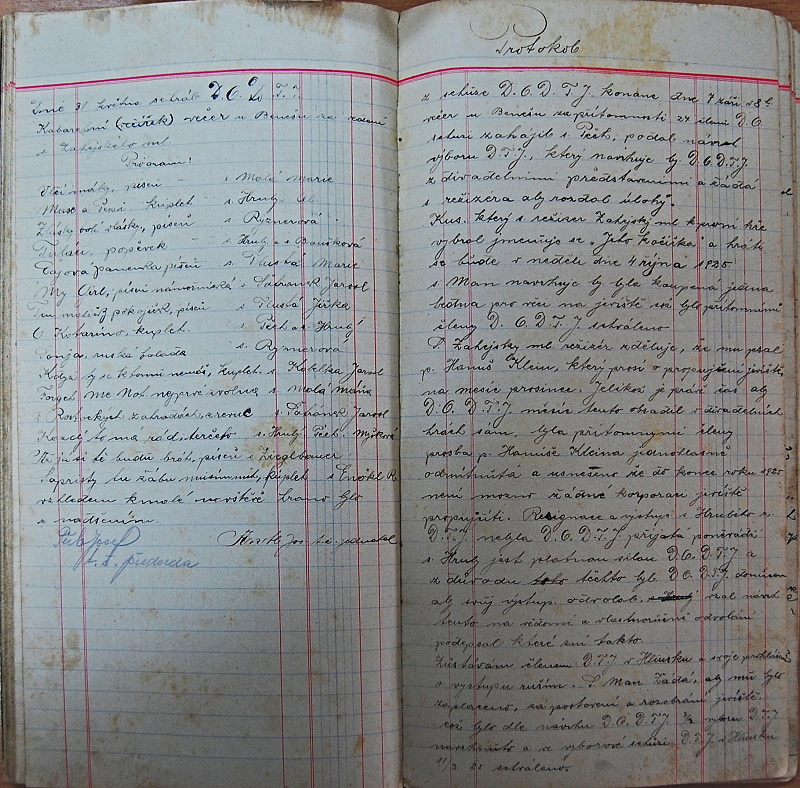 Dne 31 května sehrál D. O. D. T. J.
Kabaretní (večírek) večer u Benešu za režie
s Zahejského ml.
Program:
písеň s Malá Marie
Muse a kuplet s Hrubý
vlásky, píseň s Ryznerová
popěvek s Hrubý a s Baušková
panenka píseň s Tlustá Marie
My Girl, píseň námořnická s Šafránek Jarosl
pokojík, píseň s Tlustá Jiřka
O, Kovaríno, kuplet. s Pech a s. Hrubý
Sonja, ruská balada s Ryznerová
Když ty se k tomu nemáš, kuplet s Kotelka Jarosl
Forget Me Not s Malá Mánia
zahradách, s Šafránek Jarosl
Kozel to má rád, terčeto s. Hrubý Pech. Myšková
Že já si tě budu brát, píseň s Zieglbauer
Saprísty tu žábu musím mít, kuplet s Enökl R.
vzhledem k malé návštěvě hráno bylo
s nadšením.
Pech Josef
t. č. předseda
Jos. t. č. jednatel
Protokol
z schůze D. O. D. T J. konané dne 7 září v 8 h
večer u Benešu za přítomnosti 24 členů D. O.
schůzi zahájil s. Pech, podal návrh
výboru D. T. J., který navrhuje by D. O D. T. J
z divadelními představeními a žádá
s režizéra aby rozdal úlohy.
Kus, který s režizer Zahejský ml. k první hře
vybral jmenuje se „Jeho kočička" a hráti
se bude v neděli dne 4 října 1925
s Man navrhuje by byla koupena jedna
bedna pro věci na jeviště což bylo přítomnými
členy D. O. D. T. J schváleno
S. Zahejský ml. režizér sděluje, že mu psal
p. Hanuš Klein, který prosí o propůjčení jeviště
na měsíc prosinec. Jelikož je právě čas aby
D. O. D. T. J měsíc tento obsadil v divadelních
hrách sám, byla přítomnými členy
prosba p. Hanuše Kleina jednohlasně
odmítnuta a usneseno že do konce roku 1925
není možno žádné korporaci jeviště
propůjčiti. Resignace a výstup s Hrubého z
D. T. J nebyla D. O. D. T. J. přijata poněvadž
s Hrubý jest platnou silou D. O. D. T J a
z důvodu těchto byl D. O. D. T. J. donucen
aby svůj výstup odvolal. vzal návrh
tento na vědomí a vlastnoruční odvolání
podepsal které zní takto
Zůstávám členem D. T. J v Hlinsku a svoje prohlášení
o výstupu ruším. S. Man žádá, aby mu bylo
zaplaceno, za postavení a rozebrání jeviště
což bylo dle návrhu D. O. D. T J výboru D. T. J
navrhnuto a ve výborové schůzi D. T. J. v Hlinsku
11/9 25 schváleno.